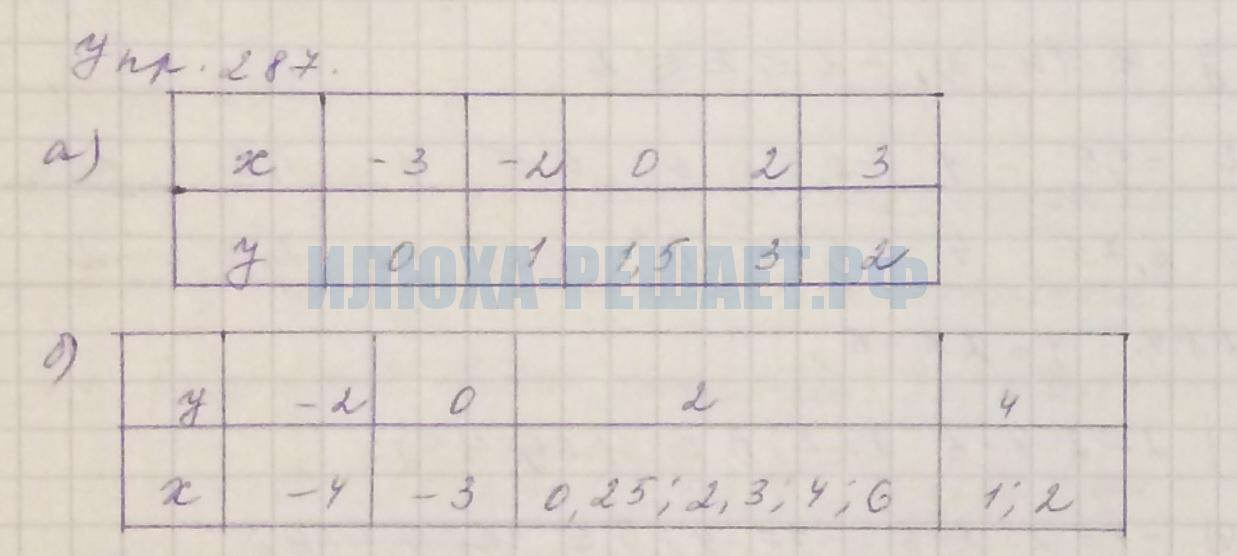 Упр. 287.
а)
x -3 -2 0 2 3
y 0 1 1,5 3 2
ИЛЮХА-РЕШАЕТ.РФ
б)
y -2 0 2 4
x -4 -3 0,25; 2,3; 4; 6 1; 2